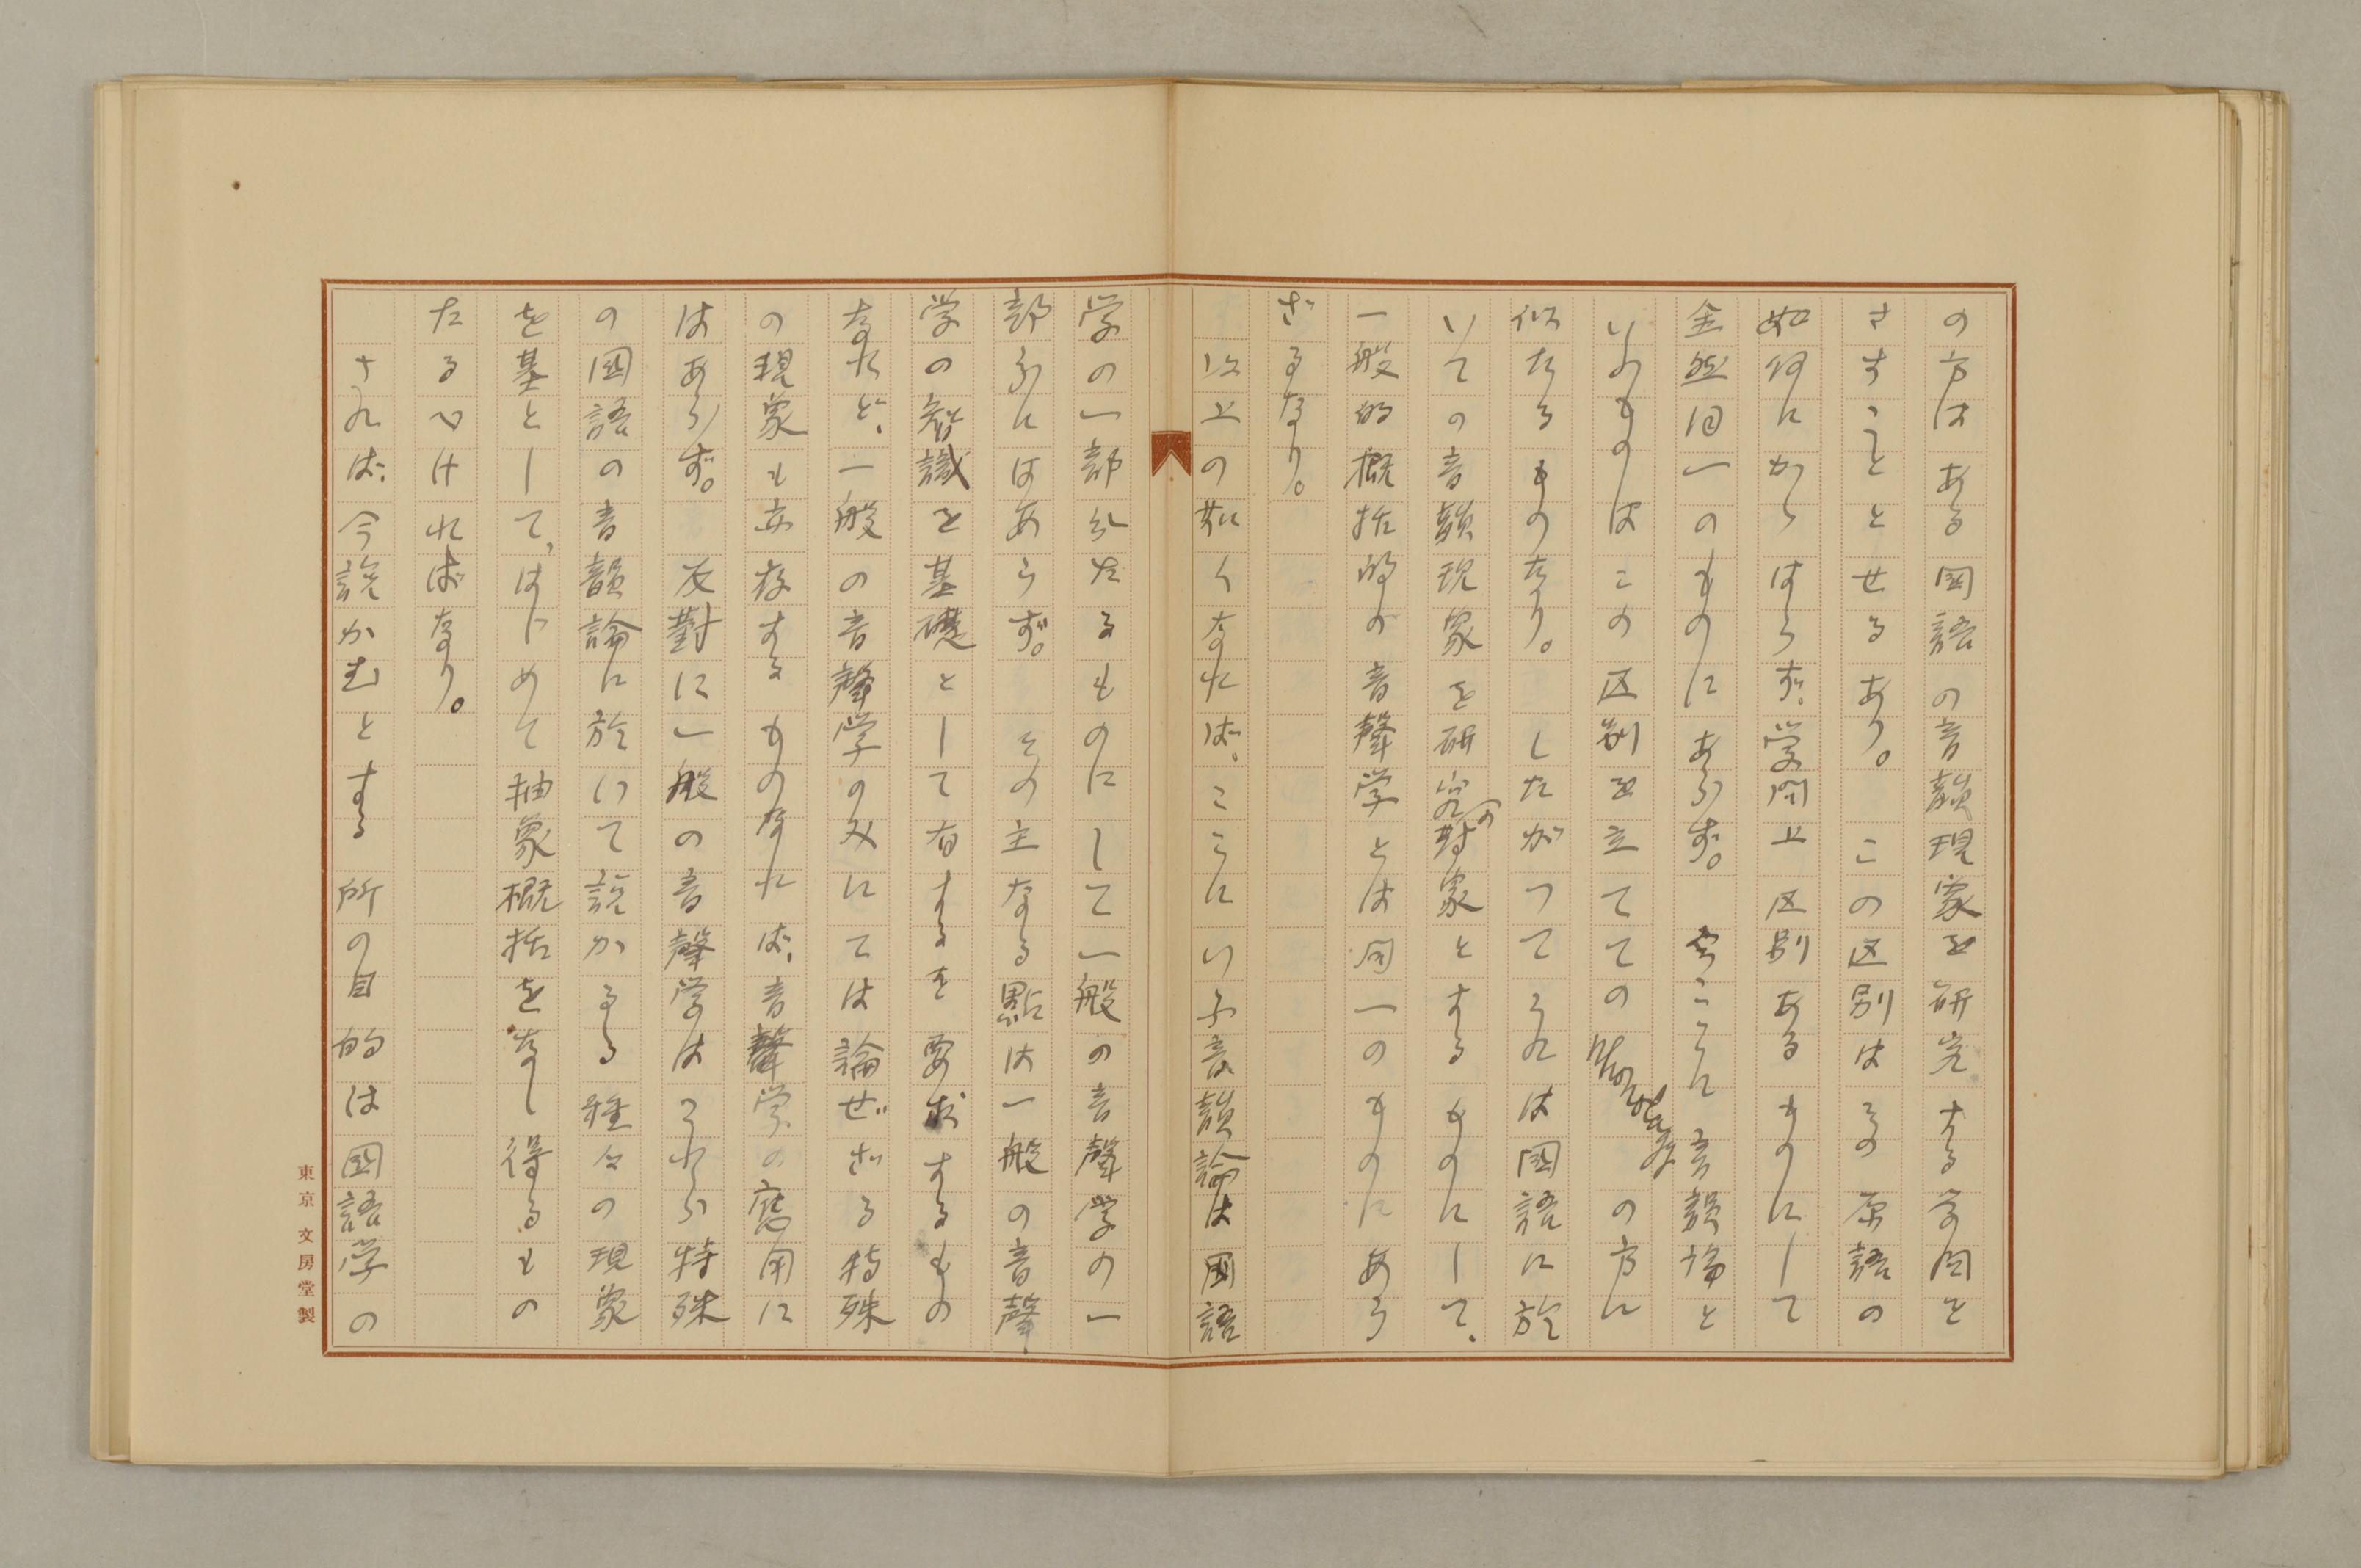 の方はある國語の音韻現象を研究する学問と
さすこととせるあり。この区別はその原語の
如何にかゝはらず、学問上区別あるものにして
全然同一のものにあらず。今こゝに音韻論と
いふものはこの区別を立てての の方に
似たるものなり。したがつてそれは國語に於
いての音韻現象を研究の對象とするものにして、
一般的概括的の音聲学とは同一のものにあら
ざるなり。
以上の如くなれば、こゝにいふ音韻論は國語
学の一部分たるものにして一般の音聲学の一
部分にはあらず。その主なる點は一般の音聲
学の智識を基礎として有するを要求するもの
なれど、一般の音聲学のみにては論ぜざる特殊
の現象も亦存するものなれば、音聲学の應用に
はあらず。反對に一般の音聲学はそれら特殊
の國語の音韻論に於いて説かるる種々の現象
を基として、はじめて抽象概括をなし得るもの
たるべければなり。
されば、今説かむとする所の目的は國語学の
東京 文房堂製